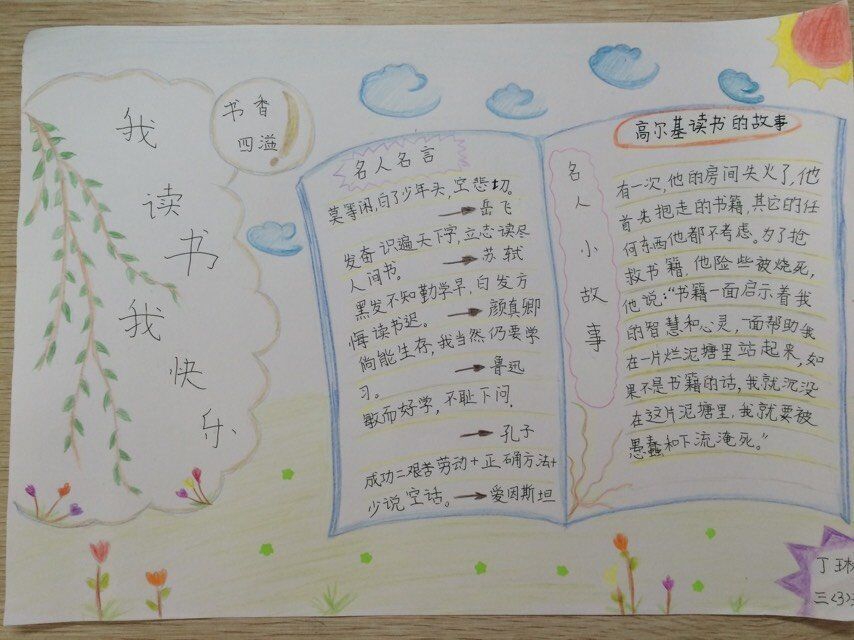 我
读
书
我
快
乐
书香
四溢
名人名言
莫等闲,白了少年头,空悲切。
→岳飞
发奋识遍天下字,立志读尽
人间书。→苏轼
黑发不知勤学早,白发方
悔读书迟。→颜真卿
倘能生存,我当然仍要学
习。→鲁迅
敏而好学,不耻下问.
→孔子
成功=艰苦劳动+正确方法+
少说空话。→爱因斯坦
名人小故事
高尔基读书的故事
有一次,他的房间失火了,他
首先抱走的书籍,其它的任
何东西他都不考虑。为了抢
救书籍,他险些被烧死,
他说:“书籍一面启示着我
的智慧和心灵,一面帮助我
在一片烂泥塘里站起来,如
果不是书籍的话,我就沉没
在这片泥塘里,我就要被
愚蠢和下流淹死。”
丁
三(3)